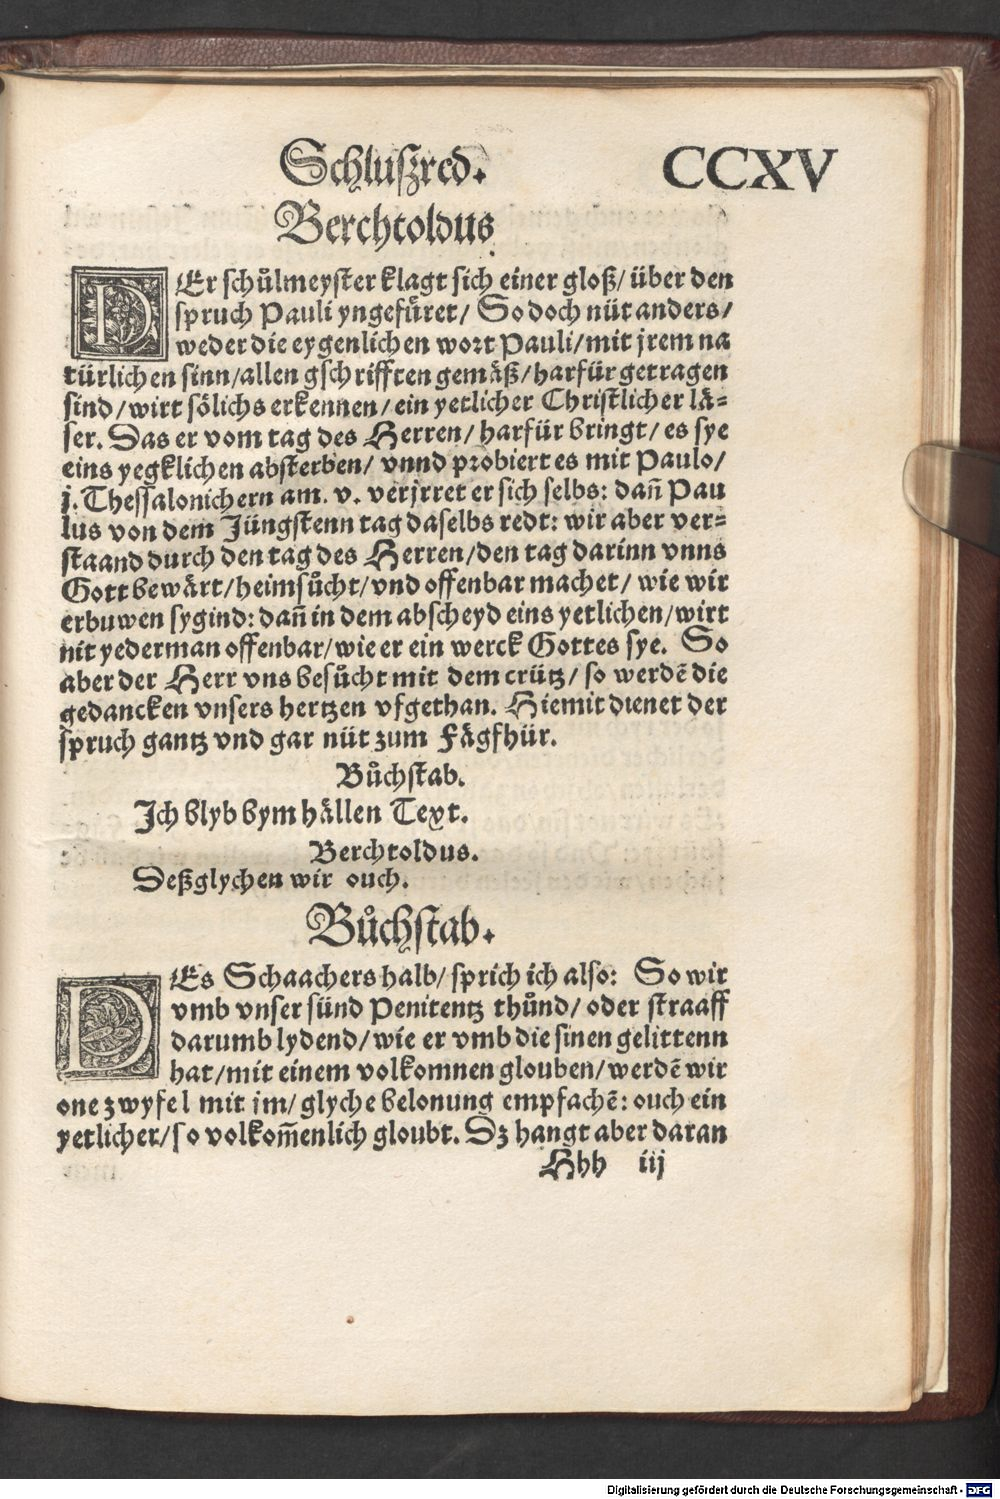 Schluſzred. CCXV
Berchtoldus
DEr ſchuͦlmeyſter klagt ſich einer gloß/ über den
ſpruch Pauli yngefüret/ So doch nüt anders/
weder die eygenlichen wort Pauli/mit jrem na
türlichen ſinn/allen gſchrifften gemäß/harfür getragen
ſind/wirt ſölichs erkennen/ein yetlicher Chriſtlicher lä⸗
ſer. Das er vom tag des Herren/harfür bringt/es ſye
eins yegklichen abſterben/ vnnd probiert es mit Paulo/
j. Theſſalonichern am. v. verjrret er ſich ſelbs: dañ Pau
lus von dem Jüngſtenn tag daſelbs redt: wir aber ver⸗
ſtaand durch den tag des Herren/den tag darinn vnns
Gott bewärt/heimſuͦcht/vnd offenbar machet/ wie wir
erbuwen ſygind: dañ in dem abſcheyd eins yetlichen/wirt
nit yederman offenbar/wie er ein werck Gottes ſye. So
aber der Herr vns beſuͦcht mit dem crütz/ ſo werdē die
gedancken vnſers hertzen vfgethan. Hiemit dienet der
ſpruch gantz vnd gar nüt zum Fägfhür.
Buͦchſtab.
Ich blyb bym hällen Text.
Berchtoldus.
Deßglychen wir ouch.
Buͦchſtab.
DEs Schaachers halb/ ſprich ich alſo: So wir
vmb vnſer ſünd Penitentz thuͦnd/ oder ſtraaff
darumb lydend/wie er vmb die ſinen gelittenn
hat/mit einem volkomnen glouben/werdē wir
one zwyfel mit jm/ glyche belonung empfachē: ouch ein
yetlicher/ſo volkom̄enlich gloubt. Dz hangt aber daran
Hhh iij
Digitalisierung gefördert durch die Deutsche Forschungsgemeinschaft - DFG